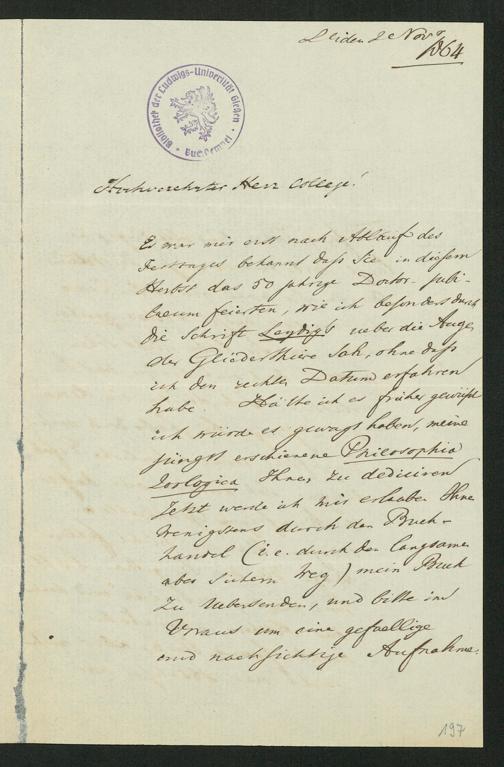 Leiden 2 Novr
1864
Bibliothek der Ludwigs-Universität Gießen
Hochverehrter Herr College!
Es war mir erst nach Ablauf des
Festtages bekannt daß Sie in diesem
Herbst das 50 jährige Doctor-jubi-
laeum feierten, wie ich besonders durch
die Schrift Leydigs ueber die Auge
der Gliederthiere sah, ohne daß
ich den rechten Datum erfahren
habe Hätte ich es früher gewußt
ich würde es gewagt haben, meine
jüngst erschienene Philosophia
Zoologica Ihnen zu dediciren
Jetzt werde ich mir erlauben Ihnen
wenigstens durch den Buch-
handel (i.e. durch den langsamen
aber sichern Weg) mein Buch
zu uebersenden, und bitte im
Voraus um eine gefaellige
und nachsichtige Aufnahme.
197